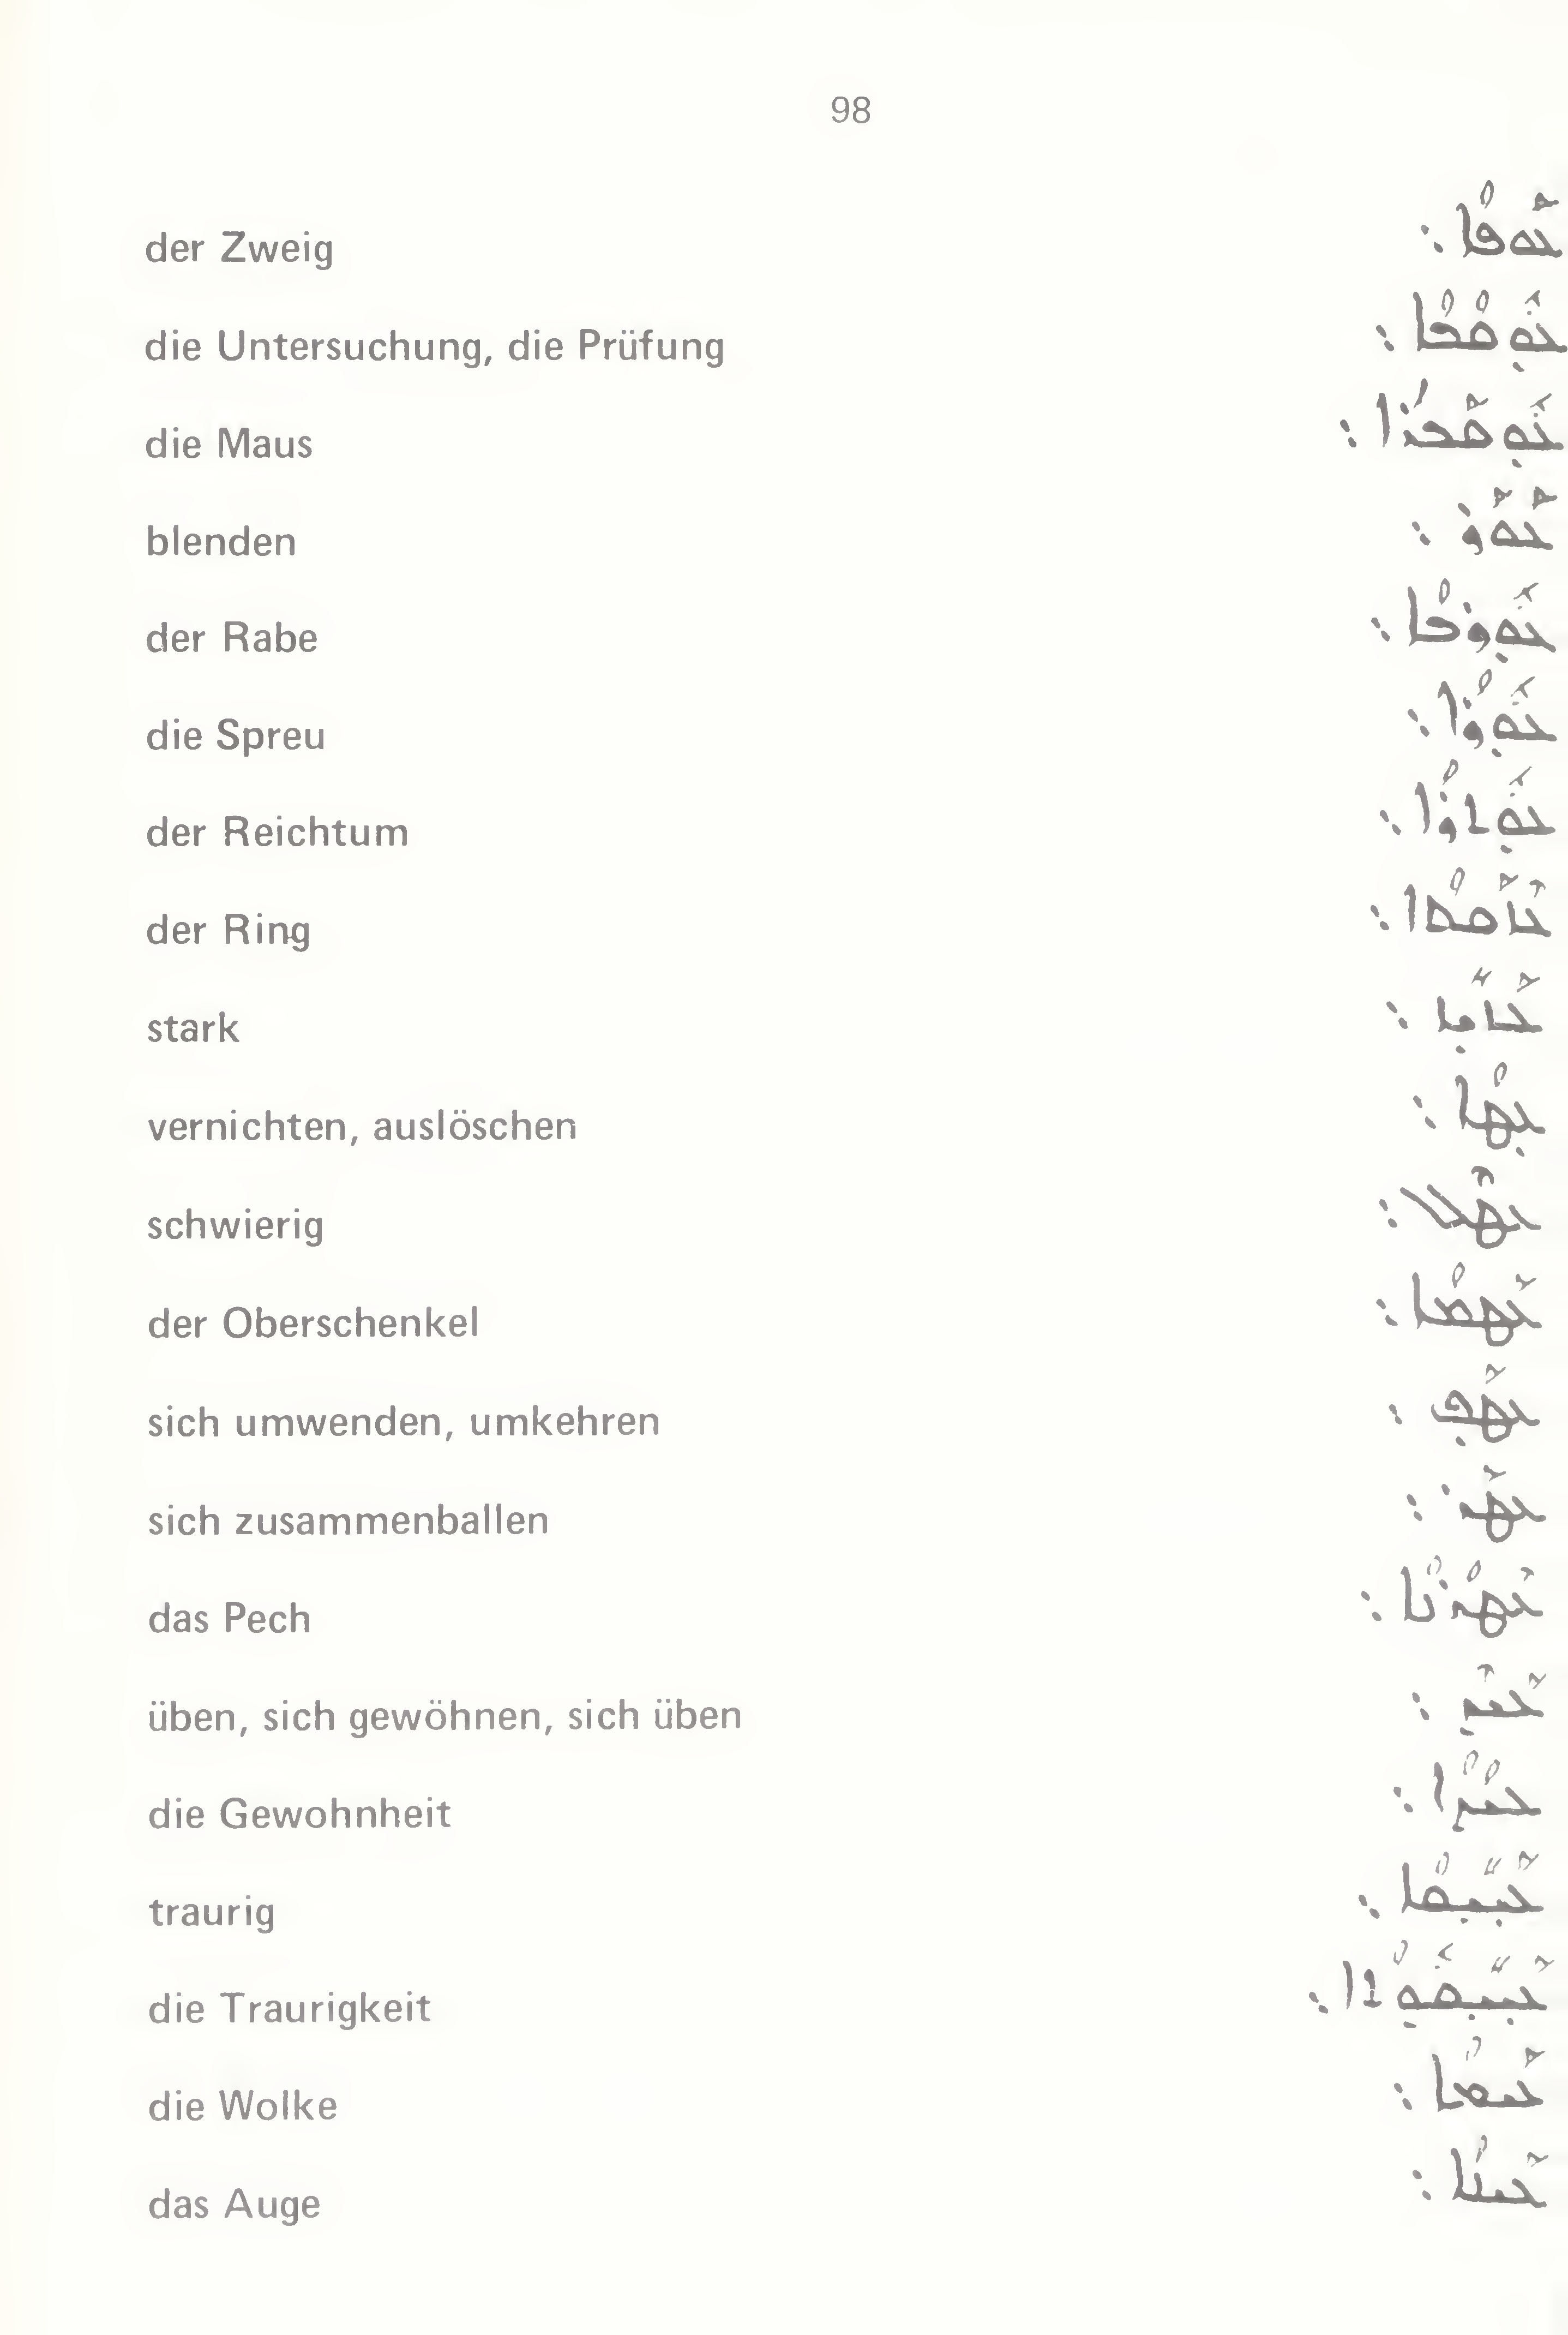 98
der Zweig ܥܰܘܦܳܐ :
die Untersuchung, die Prüfung ܥܽܘܩܳܒܳܐ :
die Maus ܥܽܘܩܰܒܪܳܐ :
blenden ܥܰܘܰܪ :
der Rabe ܥܽܘܪܒܳܐ :
die Spreu ܥܽܘܪܳܐ :
der Reichtum ܥܽܘܬܪܳܐ :
der Ring ܥܶܙܰܩܬܳܐ :
stark ܥܰܙܺܝܙ :
vernichten, auslöschen ܥܛܳܐ :
schwierig ܥܛܶܠ :
der Oberschenkel ܥܰܛܡܳܐ :
sich umwenden, umkehren ܥܛܰܦ :
sich zusammenballen ܥܛܰܪ :
das Pech ܥܶܛܪܳܢܳܐ :
üben, sich gewöhnen, sich üben ܥܰܝܶܕ :
die Gewohnheit ܥܝܳܕܳܐ :
traurig ܥܰܝܺܝܩܳܐ :
die Traurigkeit ܥܰܝܺܝܩܽܘܬܳܐ :
die Wolke ܥܰܝܡܳܐ :
das Auge ܥܰܝܢܳܐ :